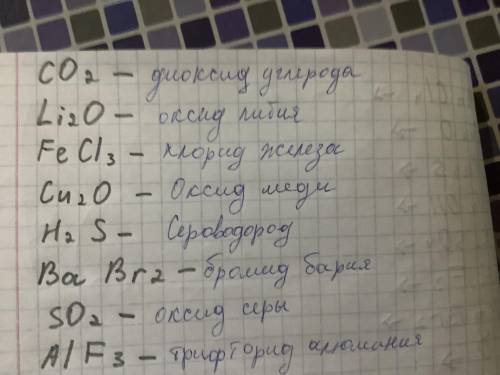 CO2 – диоксид углерода
Li2O – оксид лития
FeCl3 – хлорид железа
Cu2O – Оксид меди
H2 S – Сероводород
Ba Br2 – бромид бария
SO2 – оксид серы
Al F3 – трифторид алюминия